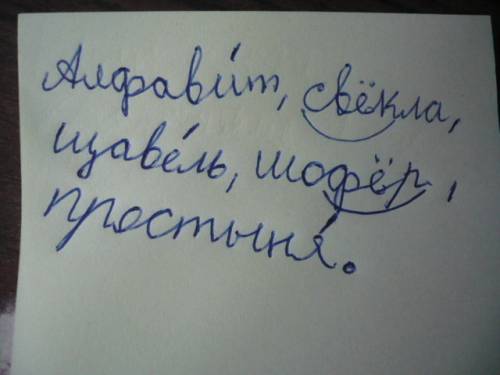 Алфави́т, свёкла,
щаве́ль, шофёр,
простыня́.